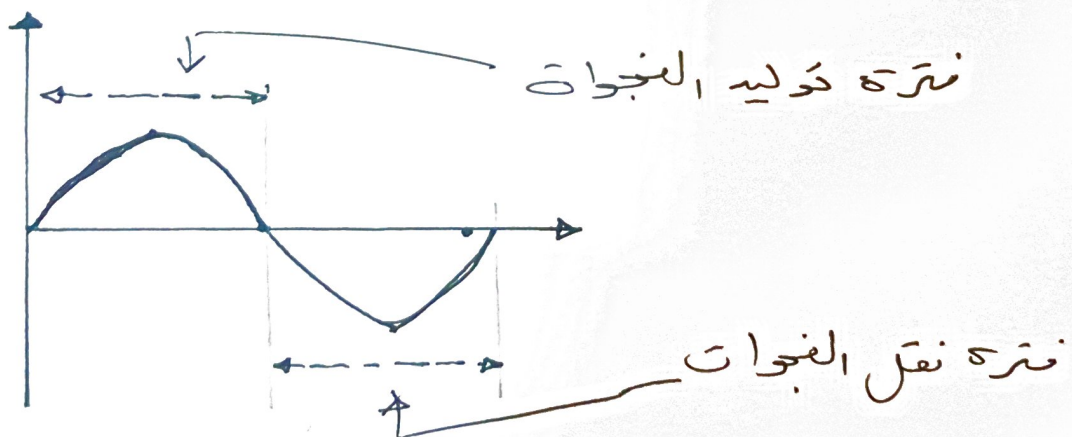 فترة توليد الفجوات
فترة نقل الفجوات